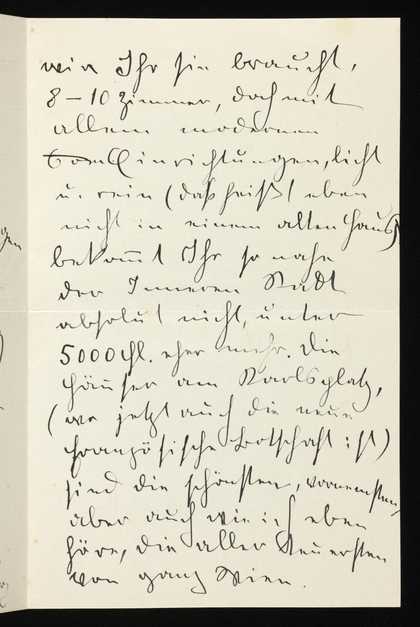 wie Ihr sie braucht,
8–10 Zimmer, doch mit
allem modernen
einrichtungen, licht
u. rein (das heißt eben
nicht in einem alten Haus)
bekom̅t Ihr so nahe
der Inneren Stadt
absolut nicht, unter
5000 fl. eher mehr. Die
Häuser am Karlsplatz,
(wo jetzt auch die neue
französische Botschaft ist)
sind die schönsten, vornemsten,
aber auch wie ich eben
höre, die aller teuersten
von ganz Wien.
gen